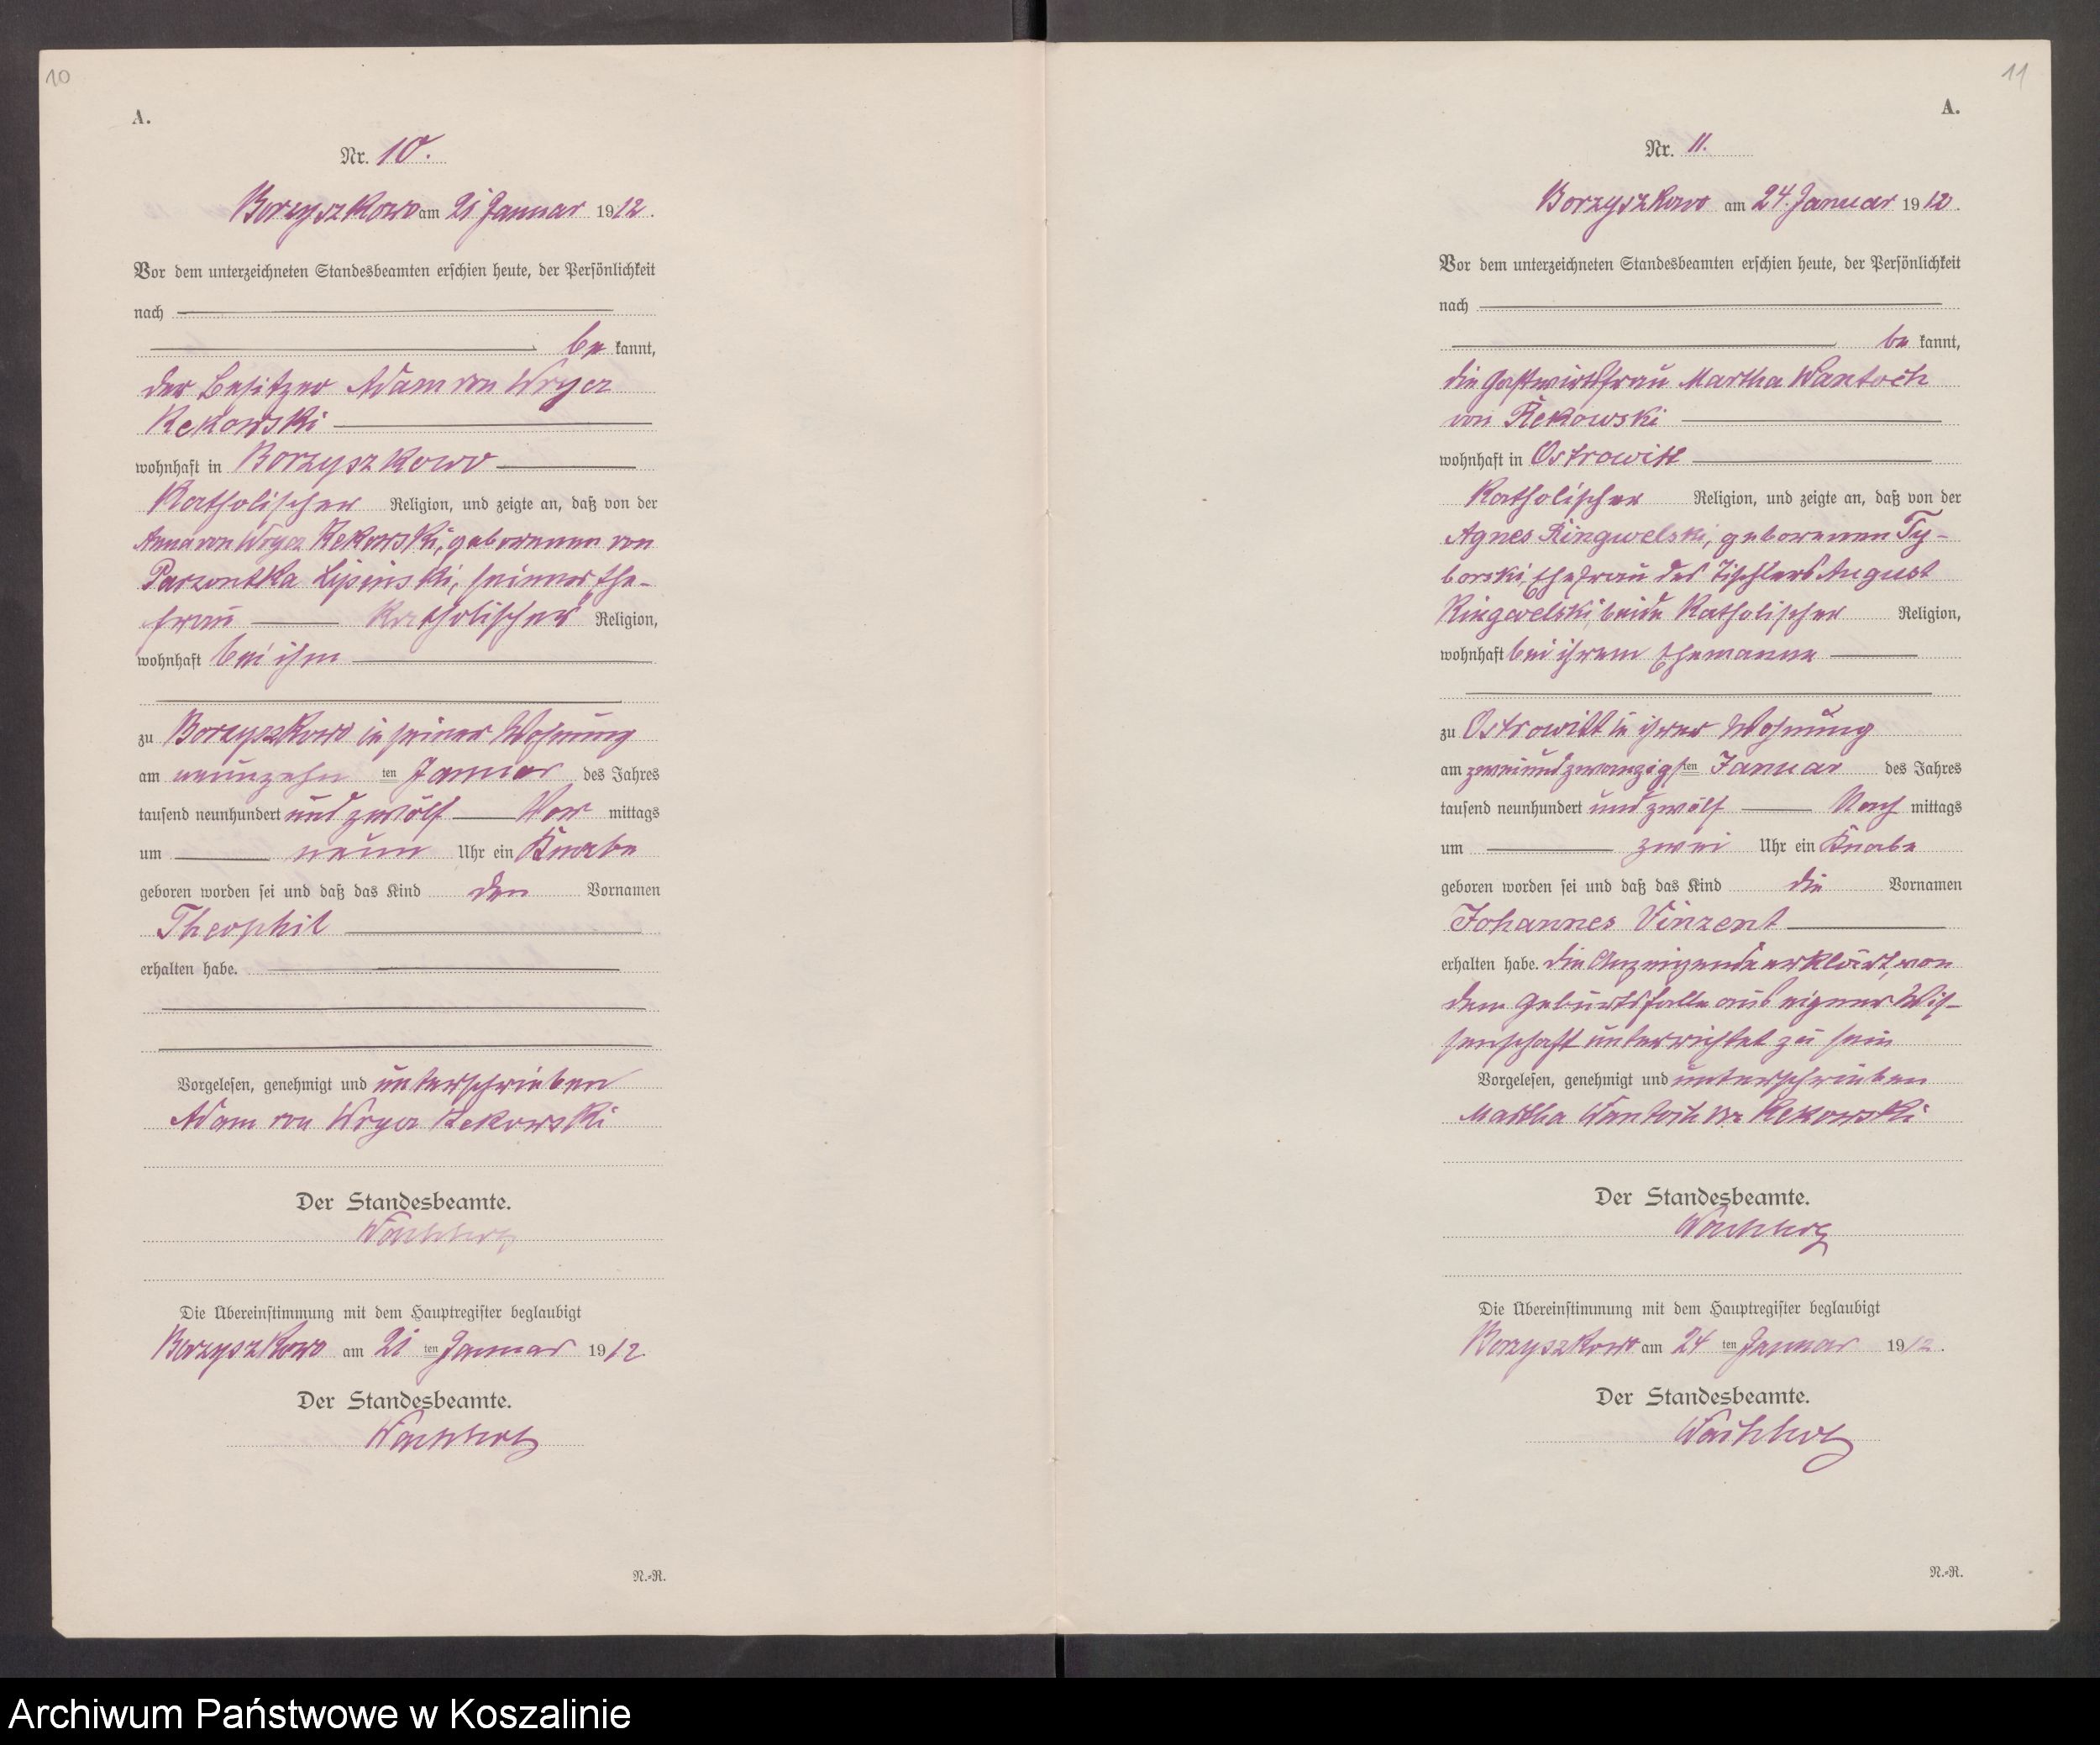 10
A.
Nr. 10.
Borzyszkowo am 21 Januar 1912.
Vor dem unterzeichneten Standesbeamten erschien heute, der Persönlichkeit
nach
be kannt,
der Besitzer Adam von Wrycz
Rekowski
wohnhaft in Borzyszkowo
katholischer Religion, und zeigte an, daß von der
Anna von Wrycz Rekowski, geborenen von
Parzontka Lipinski, seiner Ehe-
frau katholischer Religion,
wohnhaft bei ihm
zu Borzyszkowo in seiner Wohnung
am neunzehn ten Januar des Jahres
tausend neunhundert und zwölf Vor mittags
um neun Uhr ein Knabe
geboren worden sei und daß das Kind den Vornamen
Theophil
erhalten habe.
Vorgelesen, genehmigt und unterschrieben
Adam von Wrycz Rekowski
Der Standesbeamte.
Die Übereinstimmung mit dem Hauptregister beglaubigt
Borzyszkowo am 21 ten Januar 1912.
Der Standesbeamte.
N.-R.
11
A.
Nr. 11.
Borzyszkowo am 24. Januar 1912.
Vor dem unterzeichneten Standesbeamten erschien heute, der Persönlichkeit
nach
be kannt,
die Gastwirtsfrau Martha Wantoch
von Rekowski
wohnhaft in Ostrowitt
katholischer Religion, und zeigte an, daß von der
Agnes Ringwelski, geborenen Ty-
borski, Ehefrau des Tischlers August
Ringwelski, beide katholischer Religion,
wohnhaft bei ihrem Ehemanne
zu Ostrowitt in ihrer Wohnung
am zweiundzwanzigs ten Januar des Jahres
tausend neunhundert und zwölf Nach mittags
um zwei Uhr ein Knabe
geboren worden sei und daß das Kind die Vornamen
Johannes Vinzent
erhalten habe. Die Anzeigende erklärt, von
dem Geburtsfalle aus eigener Wis-
senschaft unterrichtet zu sein
Vorgelesen, genehmigt und unterschrieben
Martha Wantoch von Rekowski
Der Standesbeamte.
Die Übereinstimmung mit dem Hauptregister beglaubigt
Borzyszkowo am 24 ten Januar 1912.
Der Standesbeamte.
N.-R.
Archiwum Państwowe w Koszalinie